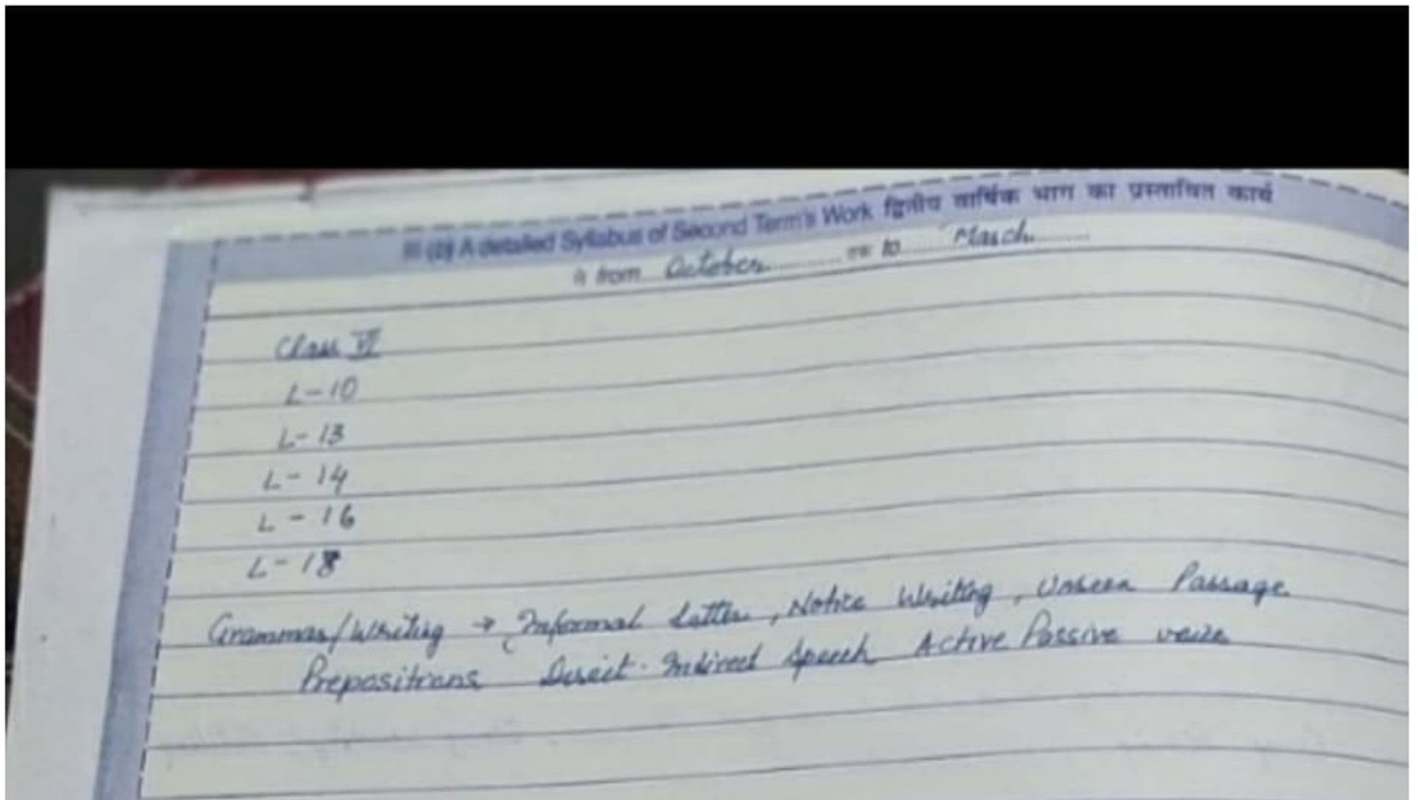 III (b) A detailed Syllabus of Second Term's Work द्वितीय वार्षिक भाग का प्रस्तावित कार्य
से from October तक to March
Class VI
L-10
L-13
L-14
L-16
L-18
Grammar/Writing → Informal Letter, Notice Writing, Unseen Passage
Prepositions Direct-Indirect Speech Active Passive voice